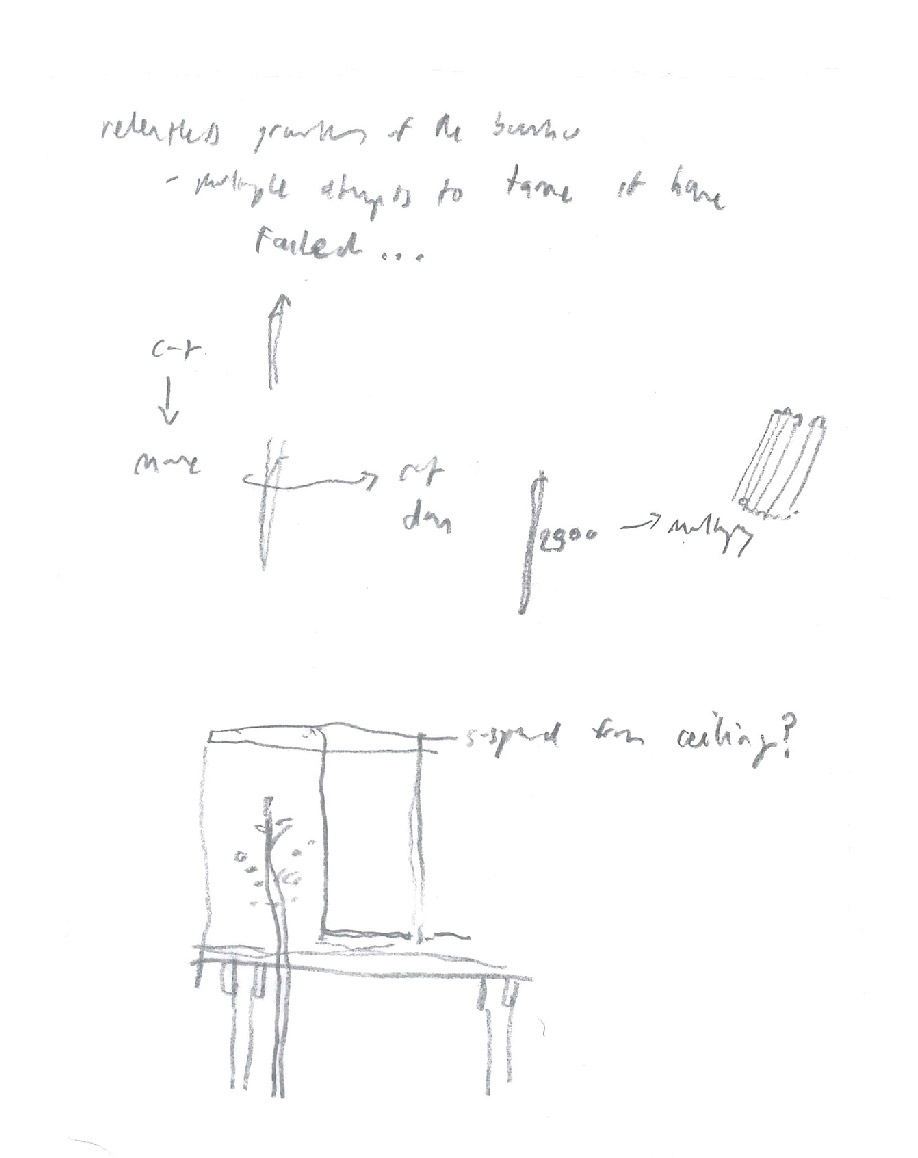 relentless growth of the bamboo
- multiple attempts to tame it have
Failed...
cut
more
cut
down
2900 → multiply
suspend from ceiling?